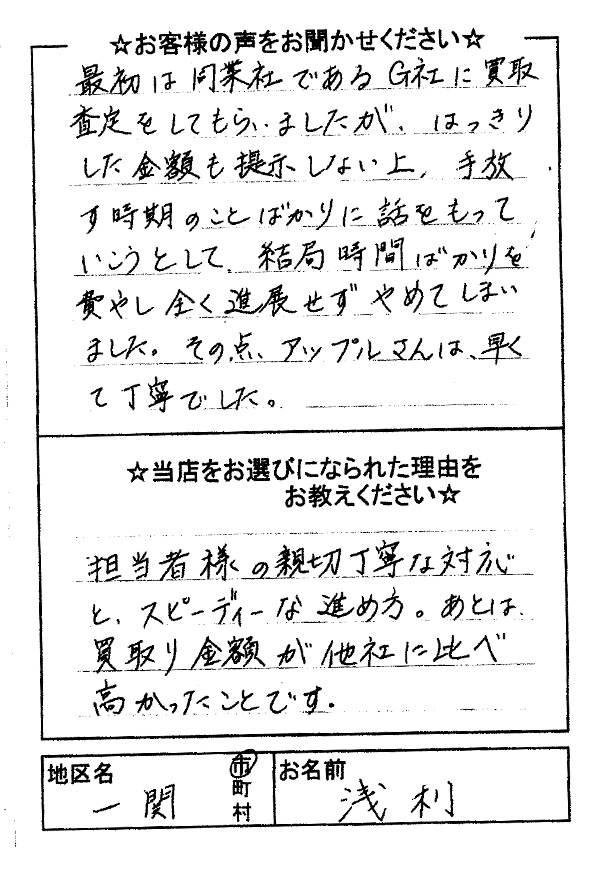 ☆お客様の声をお聞かせください☆
最初は同業社であるG社に買取
査定をしてもらいましたが、はっきり
した金額も提示しない上、手放
す時期のことばかりに話をもって
いこうとして、結局時間ばかりを
費やし全く進展せずやめてしまい
ました。その点、アップルさんは、早く
て丁寧でした。
☆当店をお選びになられた理由を
お教えください☆
担当者様の親切丁寧な対応
と、スピーディーな進め方。あとは、
買取り金額が他社に比べ
高かったことです。
地区名 一関 市町村
お名前 浅利